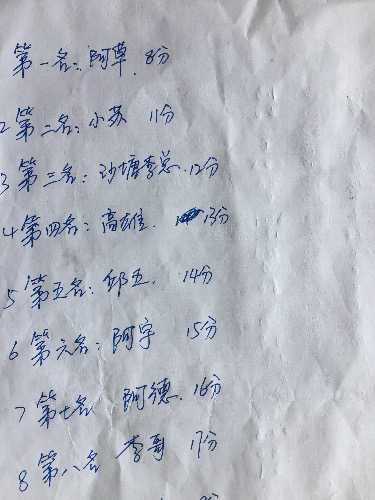 第一名:阿草.8分
2 第二名:小苏 11分
3 第三名:沙塘李总.12分
4 第四名:高雄. 13分
5 第五名:邱五. 14分
6 第六名:阿宇 15分
7 第七名 阿德.16分
8 第八名 李哥 17分